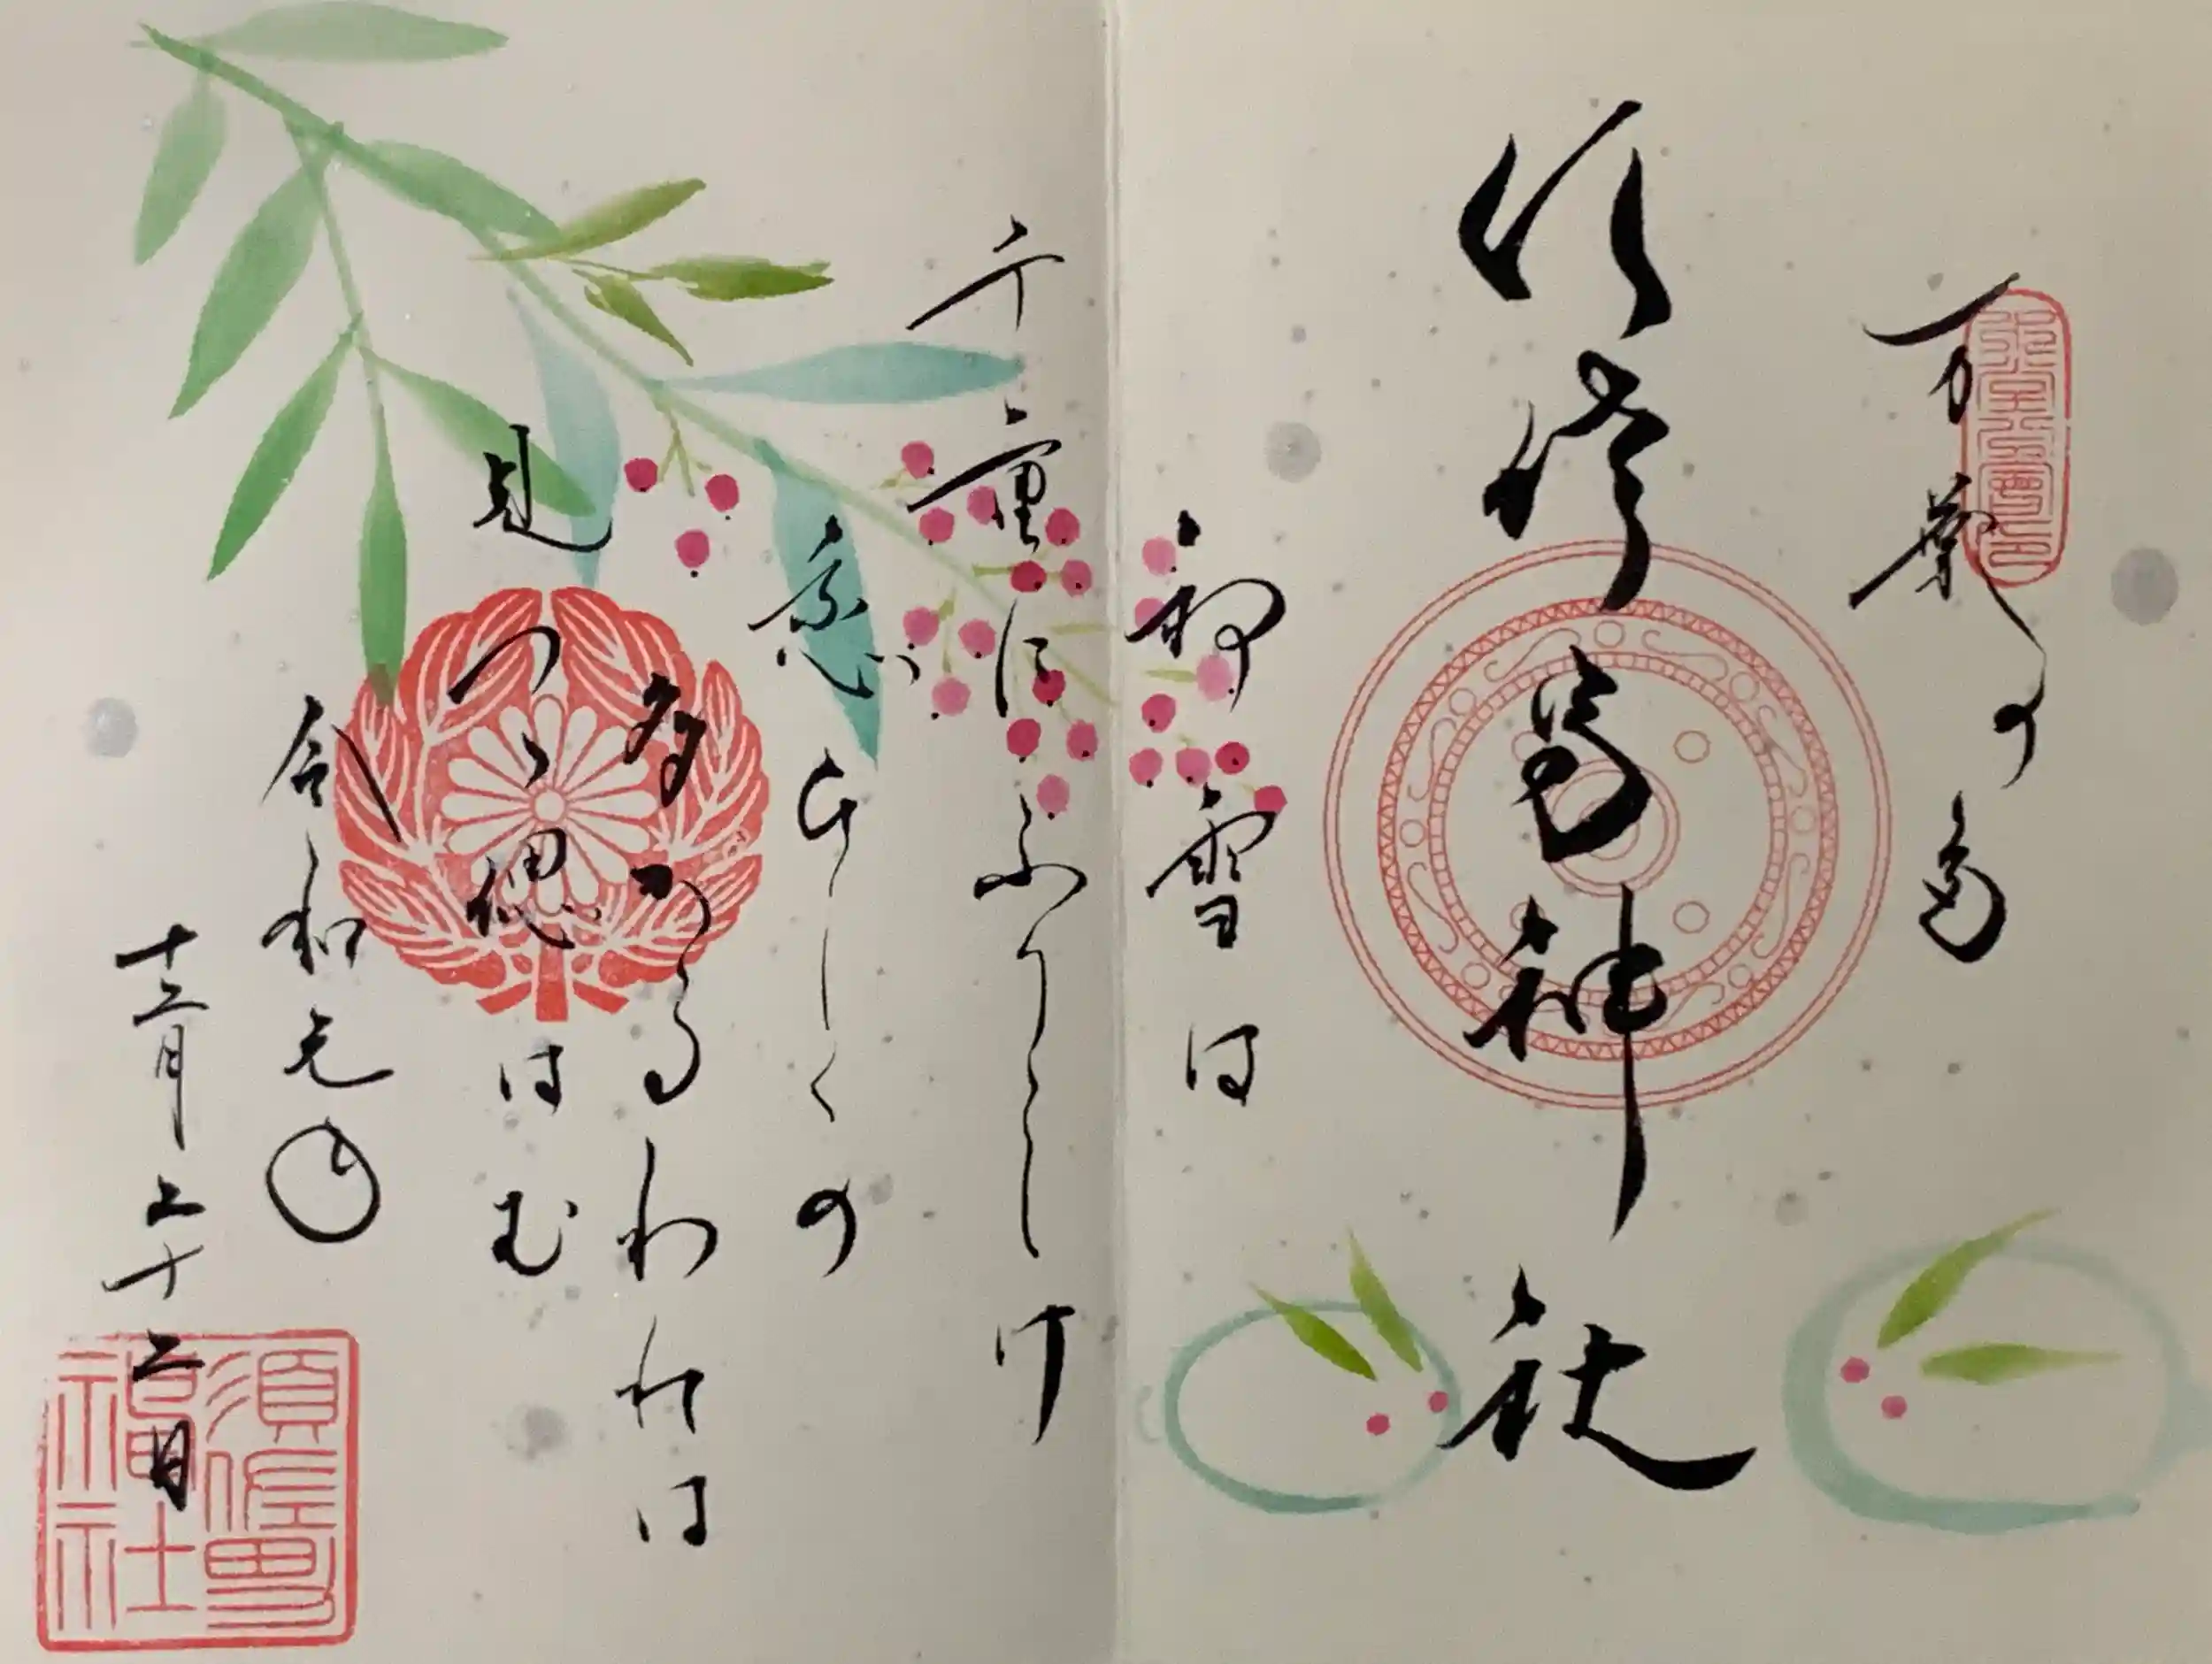 万葉の
須佐男神社
初雪は
千重にふりしけ
恋ひしくの
多かるわれは
見つゝ偲はむ
令和元年
十二月二十二日
須佐男神社